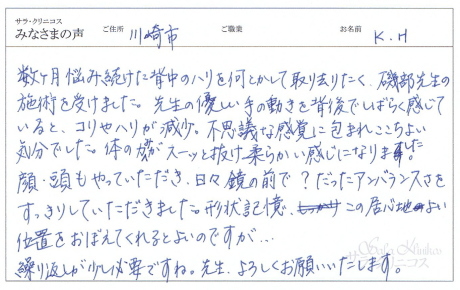 サラ・クリニコス
みなさまの声 ご住所 川崎市 ご職業 お名前 K.H
数ヶ月悩み続けた背中のハリを何とかして取り去りたく、磯部先生の
施術を受けました。先生の優しい手の動きを背後でしばらく感じて
いると、コリやハリが減少。不思議な感覚に包まれここちよい
気分でした。体の膜がスーッと抜け柔らかい感じになりました。
顔・頭もやっていただき、日々鏡の前で?だったアンバランスさを
すっきりしていただきました。形状記憶、この居心地よい
位置をおぼえてくれるとよいのですが…
繰り返しが少し必要ですね。先生、よろしくお願いいたします。
Sala Klinikos
サラ・クリニコス